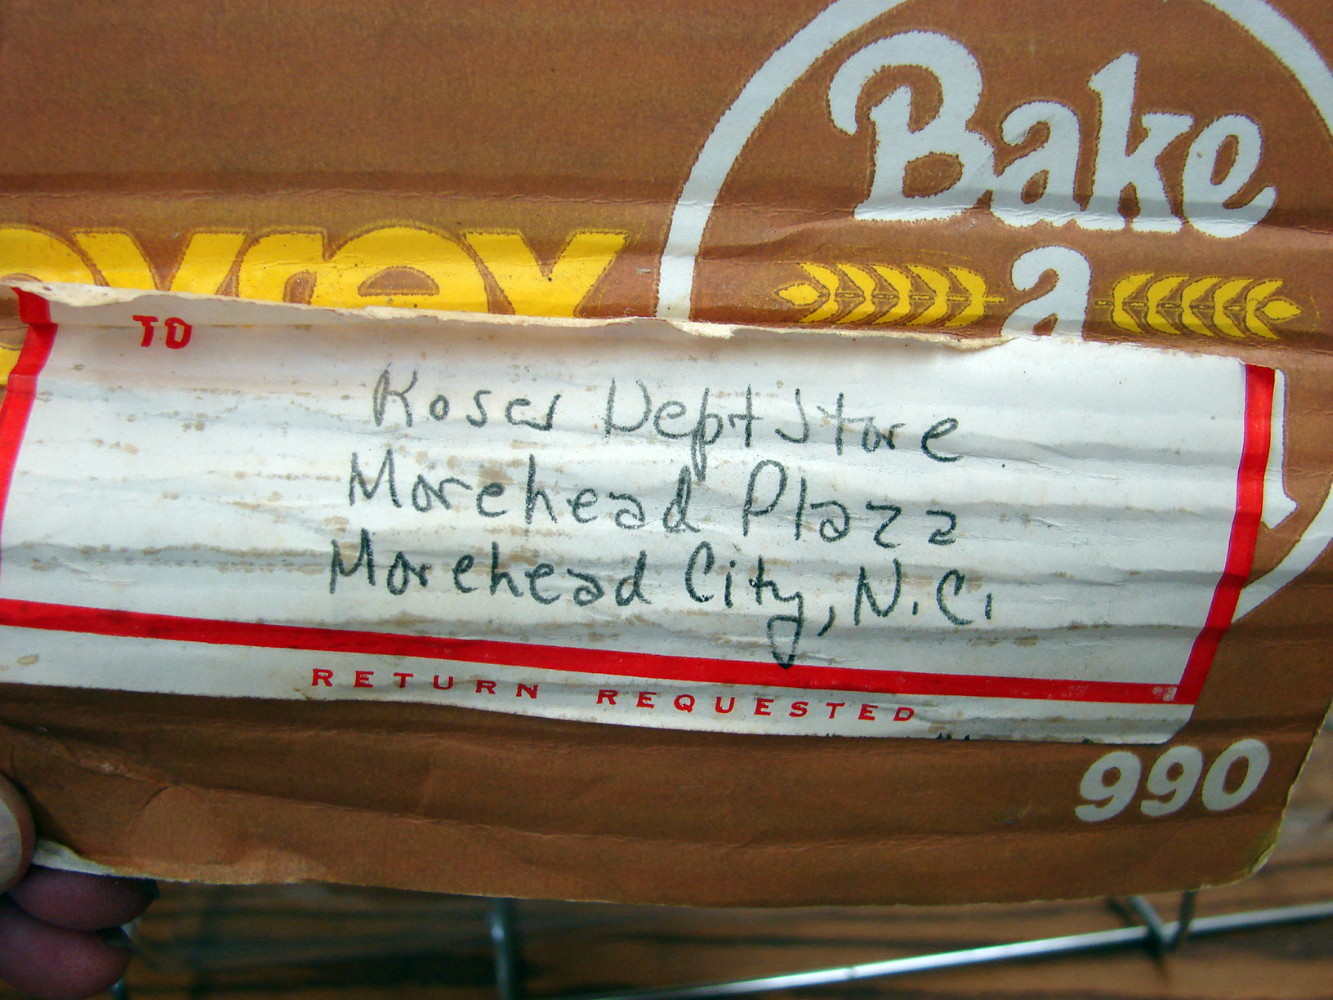 Bake
a
pyrex
TO
Roses Dept Store
Morehead Plaza
Morehead City, N.C.
RETURN REQUESTED
990